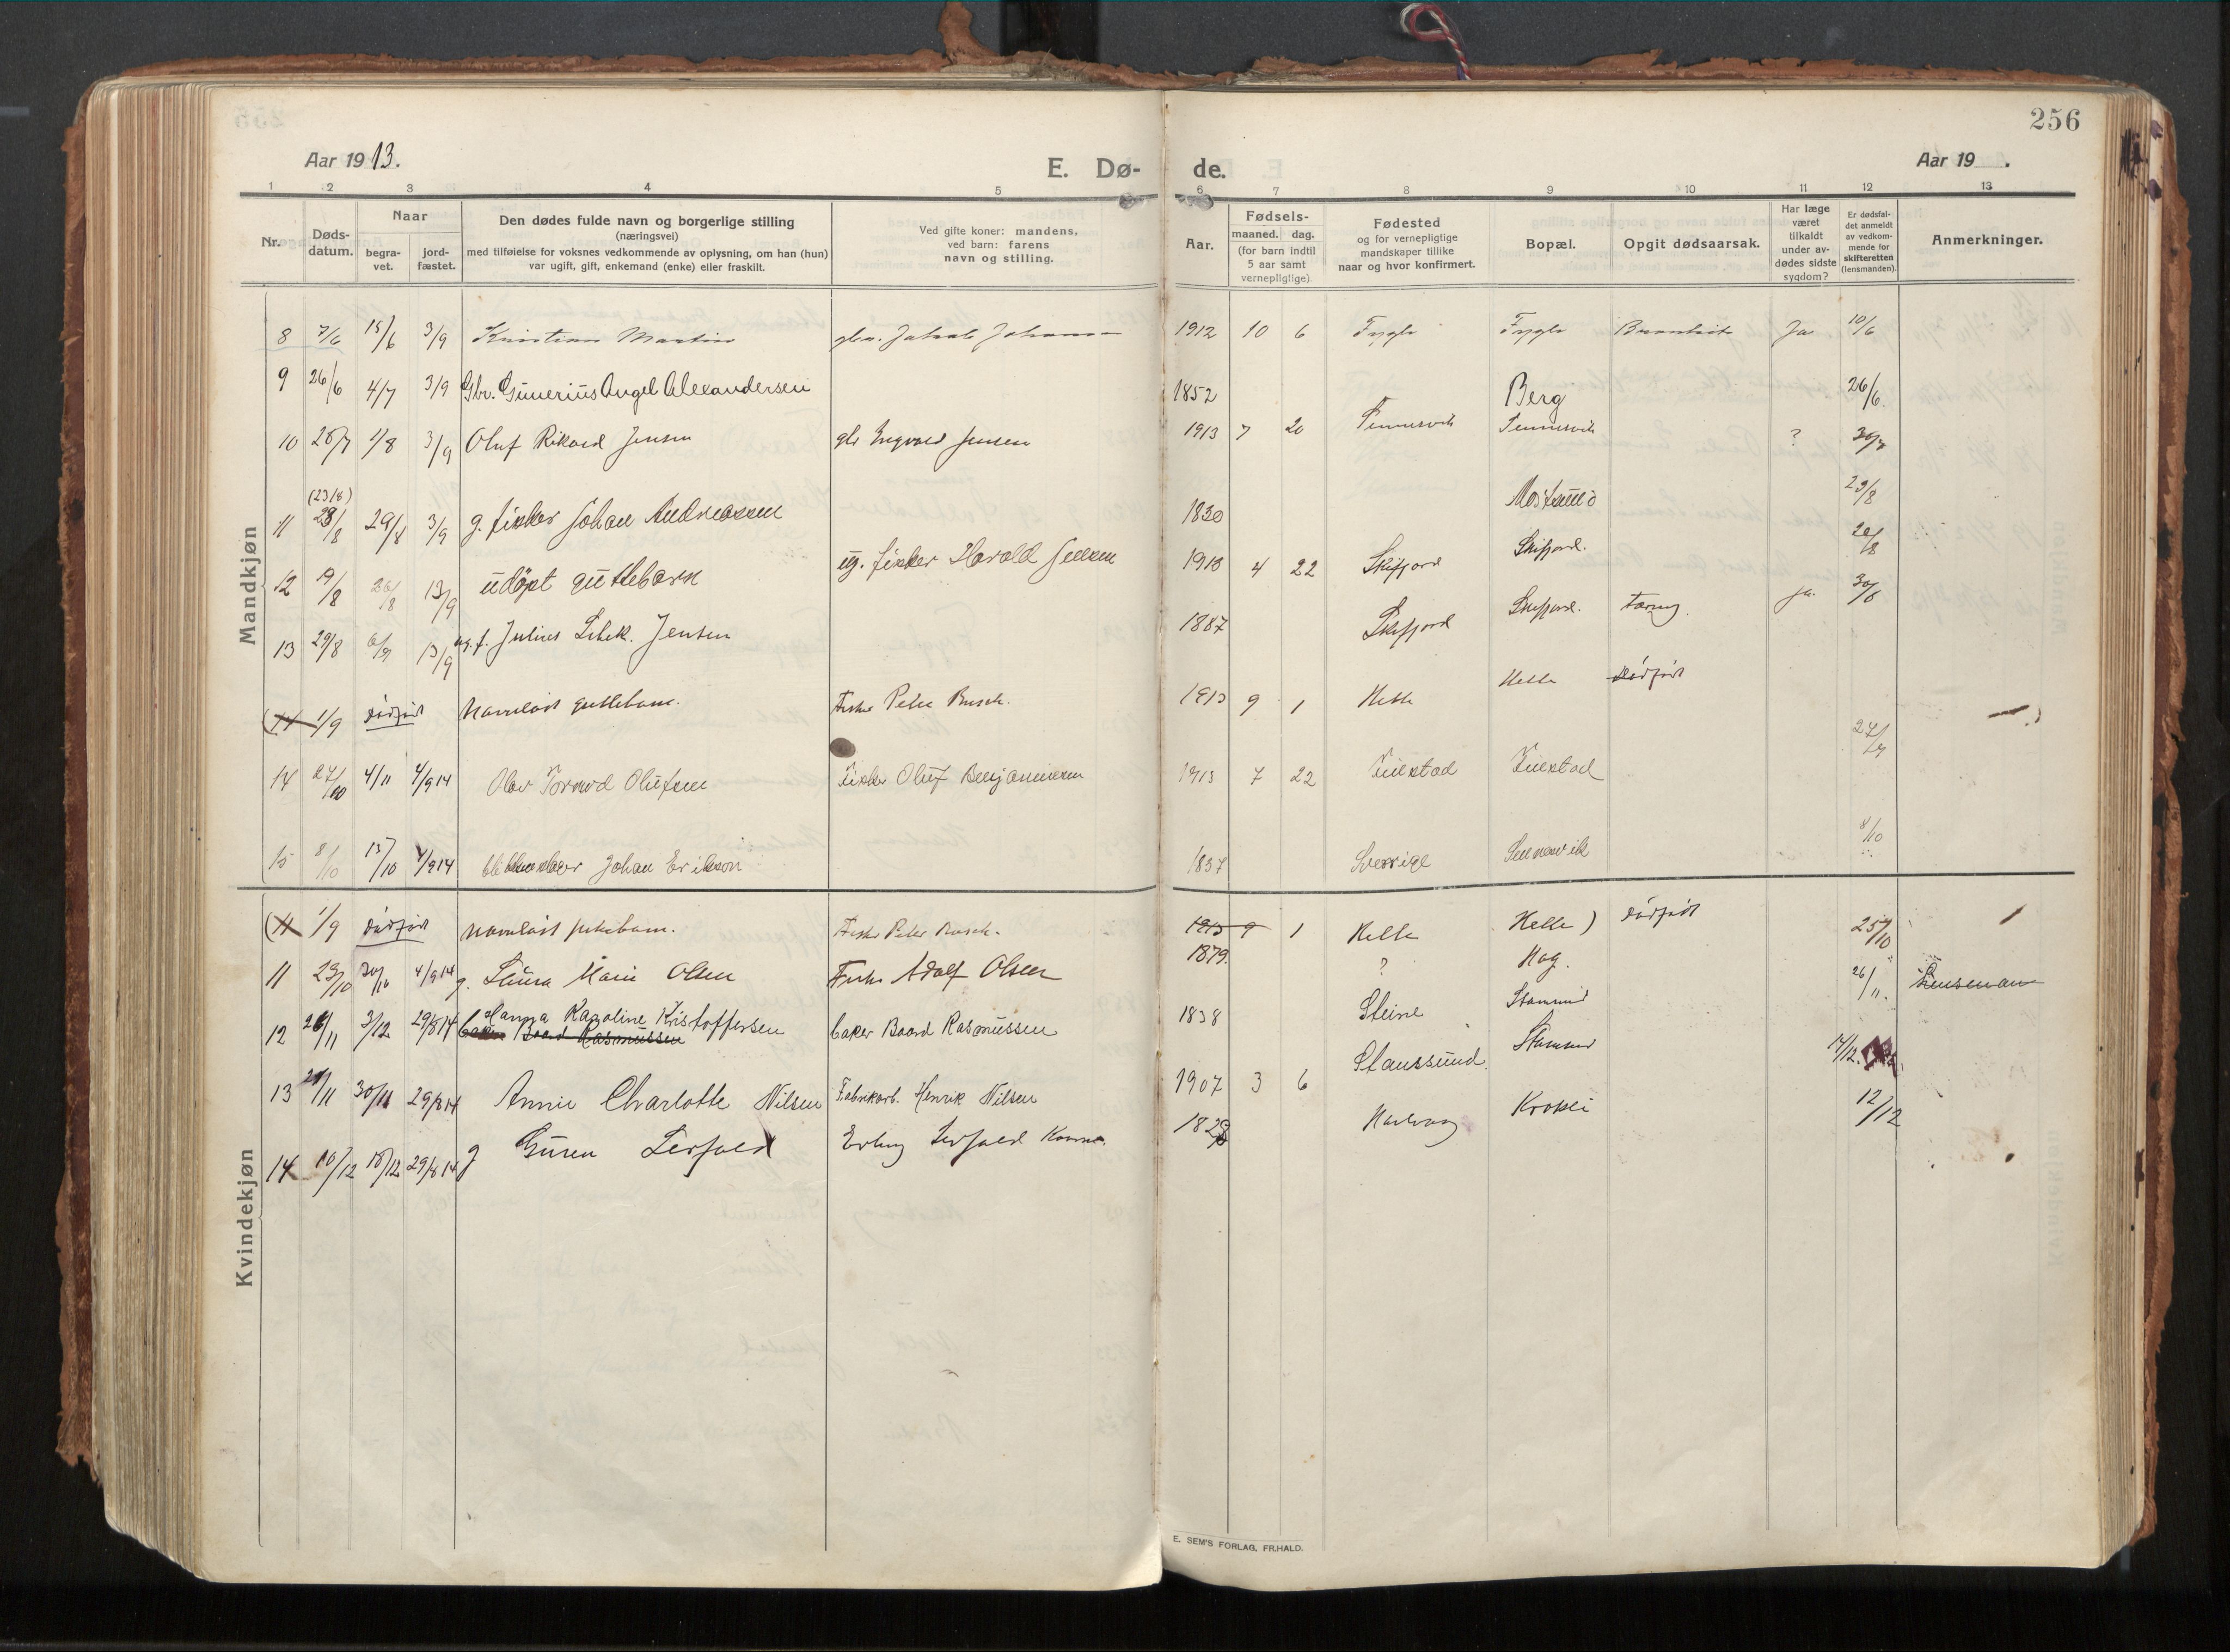 256
Aar 1913.
E. Dø- de.
Aar 19 .
1 2 3 4 5 6 7 8 9 10 11 12 13
Nr.
Døds-
datum.
Naar
begra-
vet.
jord-
fæstet.
Den dødes fulde navn og borgerlige stilling
(næringsvei)
med tilføielse for voksnes vedkommende av oplysning, om han (hun)
var ugift, gift, enkemand (enke) eller fraskilt.
Ved gifte koner: mandens,
ved barn: farens
navn og stilling.
Aar.
Fødsels-
maaned. dag.
(for barn indtil
5 aar samt
vernepligtige)
Fødested
og for vernepligtige
mandskaper tillike
naar og hvor konfirmert.
Bopæl.
Opgit dødsaarsak.
Har læge
været
tilkaldt
under av-
dødes sidste
sygdom?
Er dødsfal-
det anmeldt
av vedkom-
mende for
skifteretten
(lensmanden).
Anmerkninger.
Mandkjøn
8 7/6 15/6 3/9 Kristian Martin gbr. Jakob Johansen 1912 10 6 Fygle Fygle Ja 10/6
9 26/6 4/7 3/9 Gbr. Gunerius Angel Alexandersen 1852 Berg 26/6.
10 28/7 1/8 3/9 Oluf Rikard Jensen gbr Ingvald Jensen 1913 7 20 Sennesvik Sennesvik ? 30/7
(23/8)
11 28/8 29/8 3/9 g. fisker Johan Andreassen 1830 23/8
12 19/8 26/8 13/9 udöpt guttebarn ug. fisker Harald Jensen 1913 4 22 Skifjord Skifjord. 20/8
13 29/8 6/9 13/9 ug. f. Julius Jensen 1887 Skifjord Skifjord. Tæring. ja. 30/8
(14 1/9 dödfödt Navnlöst guttebarn. Fisker Peter Busch. 1913 9 1 Helle Helle dödfödt )
14 27/10 4/11 4/9 14 Olav Tormod Olufsen Fisker Oluf Benjaminsen 1913 7 22
15 8/10 13/10 4/9 14 Johan Erikson 1837 Sverrige Sennesvik 8/10
Kvindekjøn
(11 1/9 dödfödt Navnlöst pikebarn. Fisker Peter Busch. 1913 9 1 Helle Helle ) dödfödt
11 23/10 30/10 4/9 14 g. Laura Marie Olsen Fisker Adolf Olsen 1879. ? Hag. 25/10
Hanna Karoline Kristoffersen
12 26/11 3/12 29/8 14 Baard Rasmussen baker Baard Rasmussen 1838 Steine Stamsund 26/11. Lensemann
13 21/11 30/11 29/8 14 Annie Charlotte Nilsen Fabrikarb. Henrik Nilsen 1907 3 6 Stamsund. Stamsund 14/12.
14 10/12 18/12 29/8 14 g Guren Lerfald Erling Lerfald 1828 12/12
E. SEM'S FORLAG, FR.HALD.